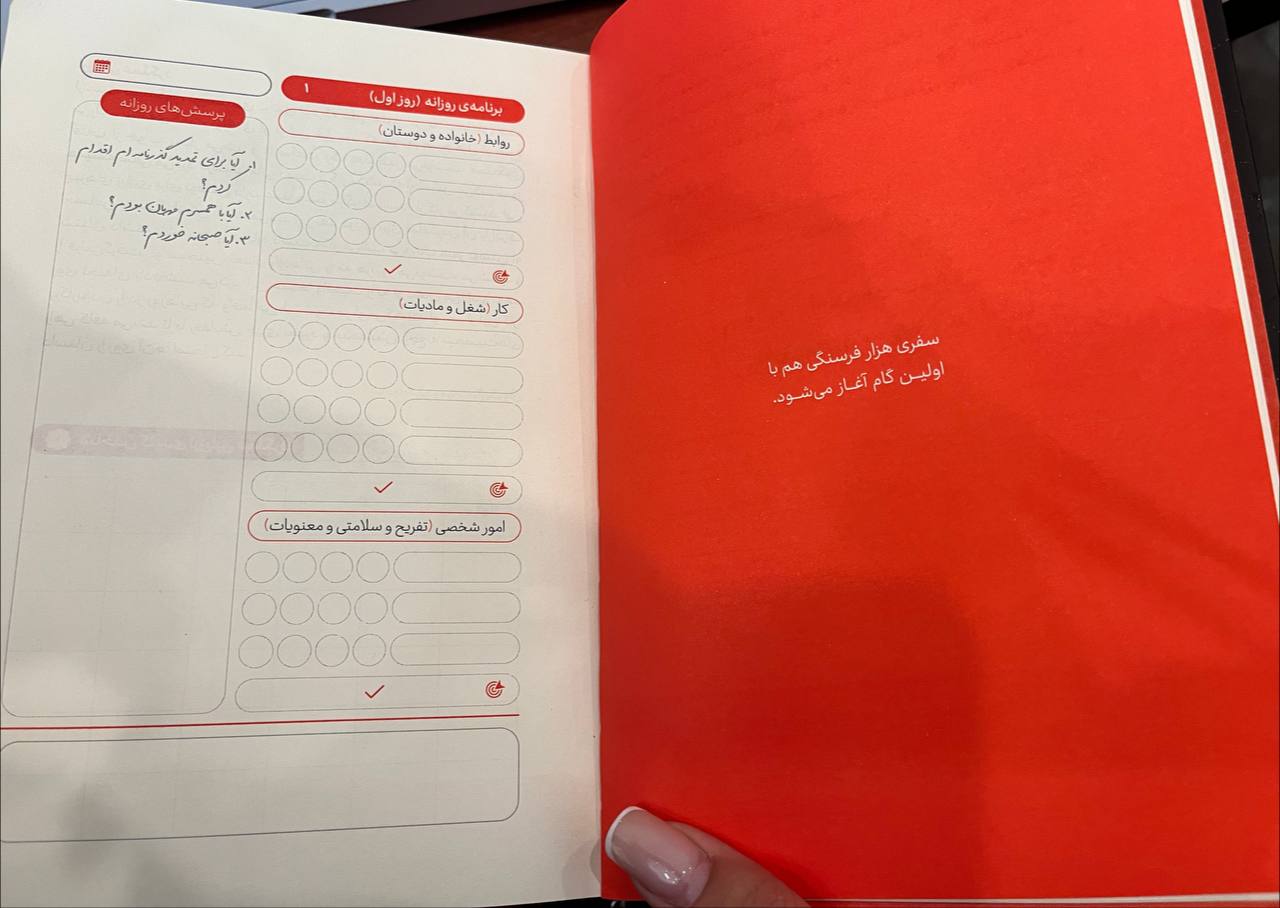 سفری هزار فرسنگی هم با
اولین گام آغاز می‌شود.
برنامه‌ی روزانه (روز اول) ۱
روابط (خانواده و دوستان)
کار (شغل و مادیات)
امور شخصی (تفریح و سلامتی و معنویات)
پرسش‌های روزانه
۱. آیا برای تمدید گذرنامه ام اقدام
کردم؟
۲. آیا با همسرم مهربان بودم؟
۳. آیا صبحانه خوردم؟